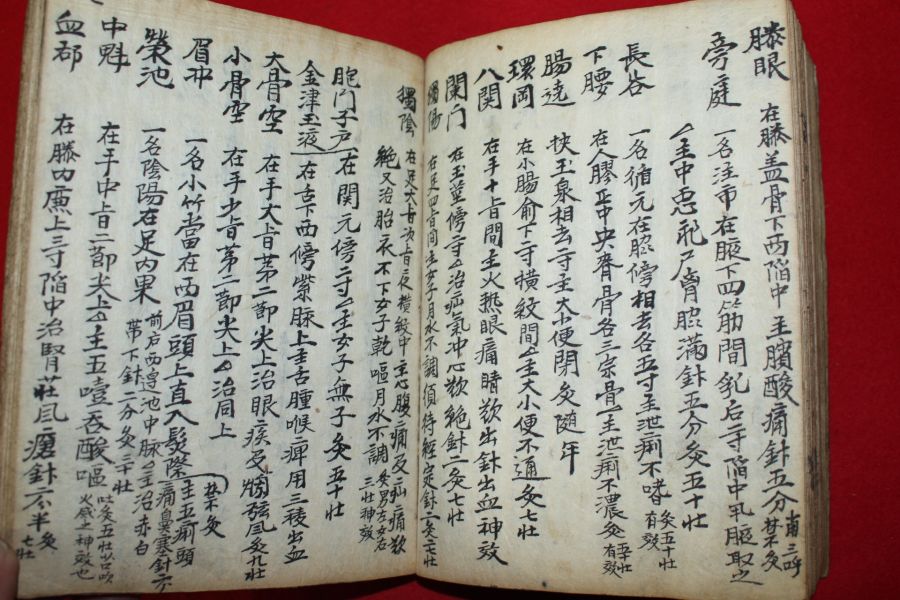 膝眼 在膝盖骨下两陷中 主臏酸痛 針五分 留三呼 禁不灸
旁庭 一名注市 在腋下四筋間 乳后二寸陷中
主中惡 滿 針五分 灸五十壯
長谷 一名循元 在脐傍相去各五寸 主泄痢不嗜 灸五十壯 有效
下腰 在八膠正中央脊骨各三宗骨 主泄痢不濃 灸五十壯 有效
腸遶 挾玉泉相去二寸 主大小便閉 灸随年
環岡 在小腸俞下二寸橫紋間 主大小便不通 灸七壯
八関 在手十旨間 主火热眼痛 睛欲出 針出血神效
闌门 在玉莖傍二寸 治疝氣冲心欲絶 針 灸二七壯
獨陽 在足四旨間 主女子月水不調 須待經定 針 灸
獨陰 在足大旨次旨 橫紋中 主心腹痛及疝痛欲
絶 又治胎衣不下 女子乾嘔 月水不調 灸男左女右 三壯神效
胞門子戶 在関元傍二寸 主女子無子 灸五十壯
金津玉液 在舌下两傍紫脉上 主舌腫喉痺 用三稜出血
大骨空 在手大旨第二節尖上 治眼疾及爛弦風 灸九壯
小骨空 在手少旨第二節尖上 治同上
眉冲 一名小竹 當在两眉頭上直入髮際 禁不灸 主五痢 頭痛鼻塞 針
榮池 一名陰陽 在足內果前后两 池中脉 主治赤白帶下 針二分 灸三十壯
中魁 在手中旨二節尖上 主五噎吞酸嘔吐 灸五壯 吹火滅之神效也
血郄 在膝內廉上三寸陷中 治腎莊風瘡 針六分半 灸七壯